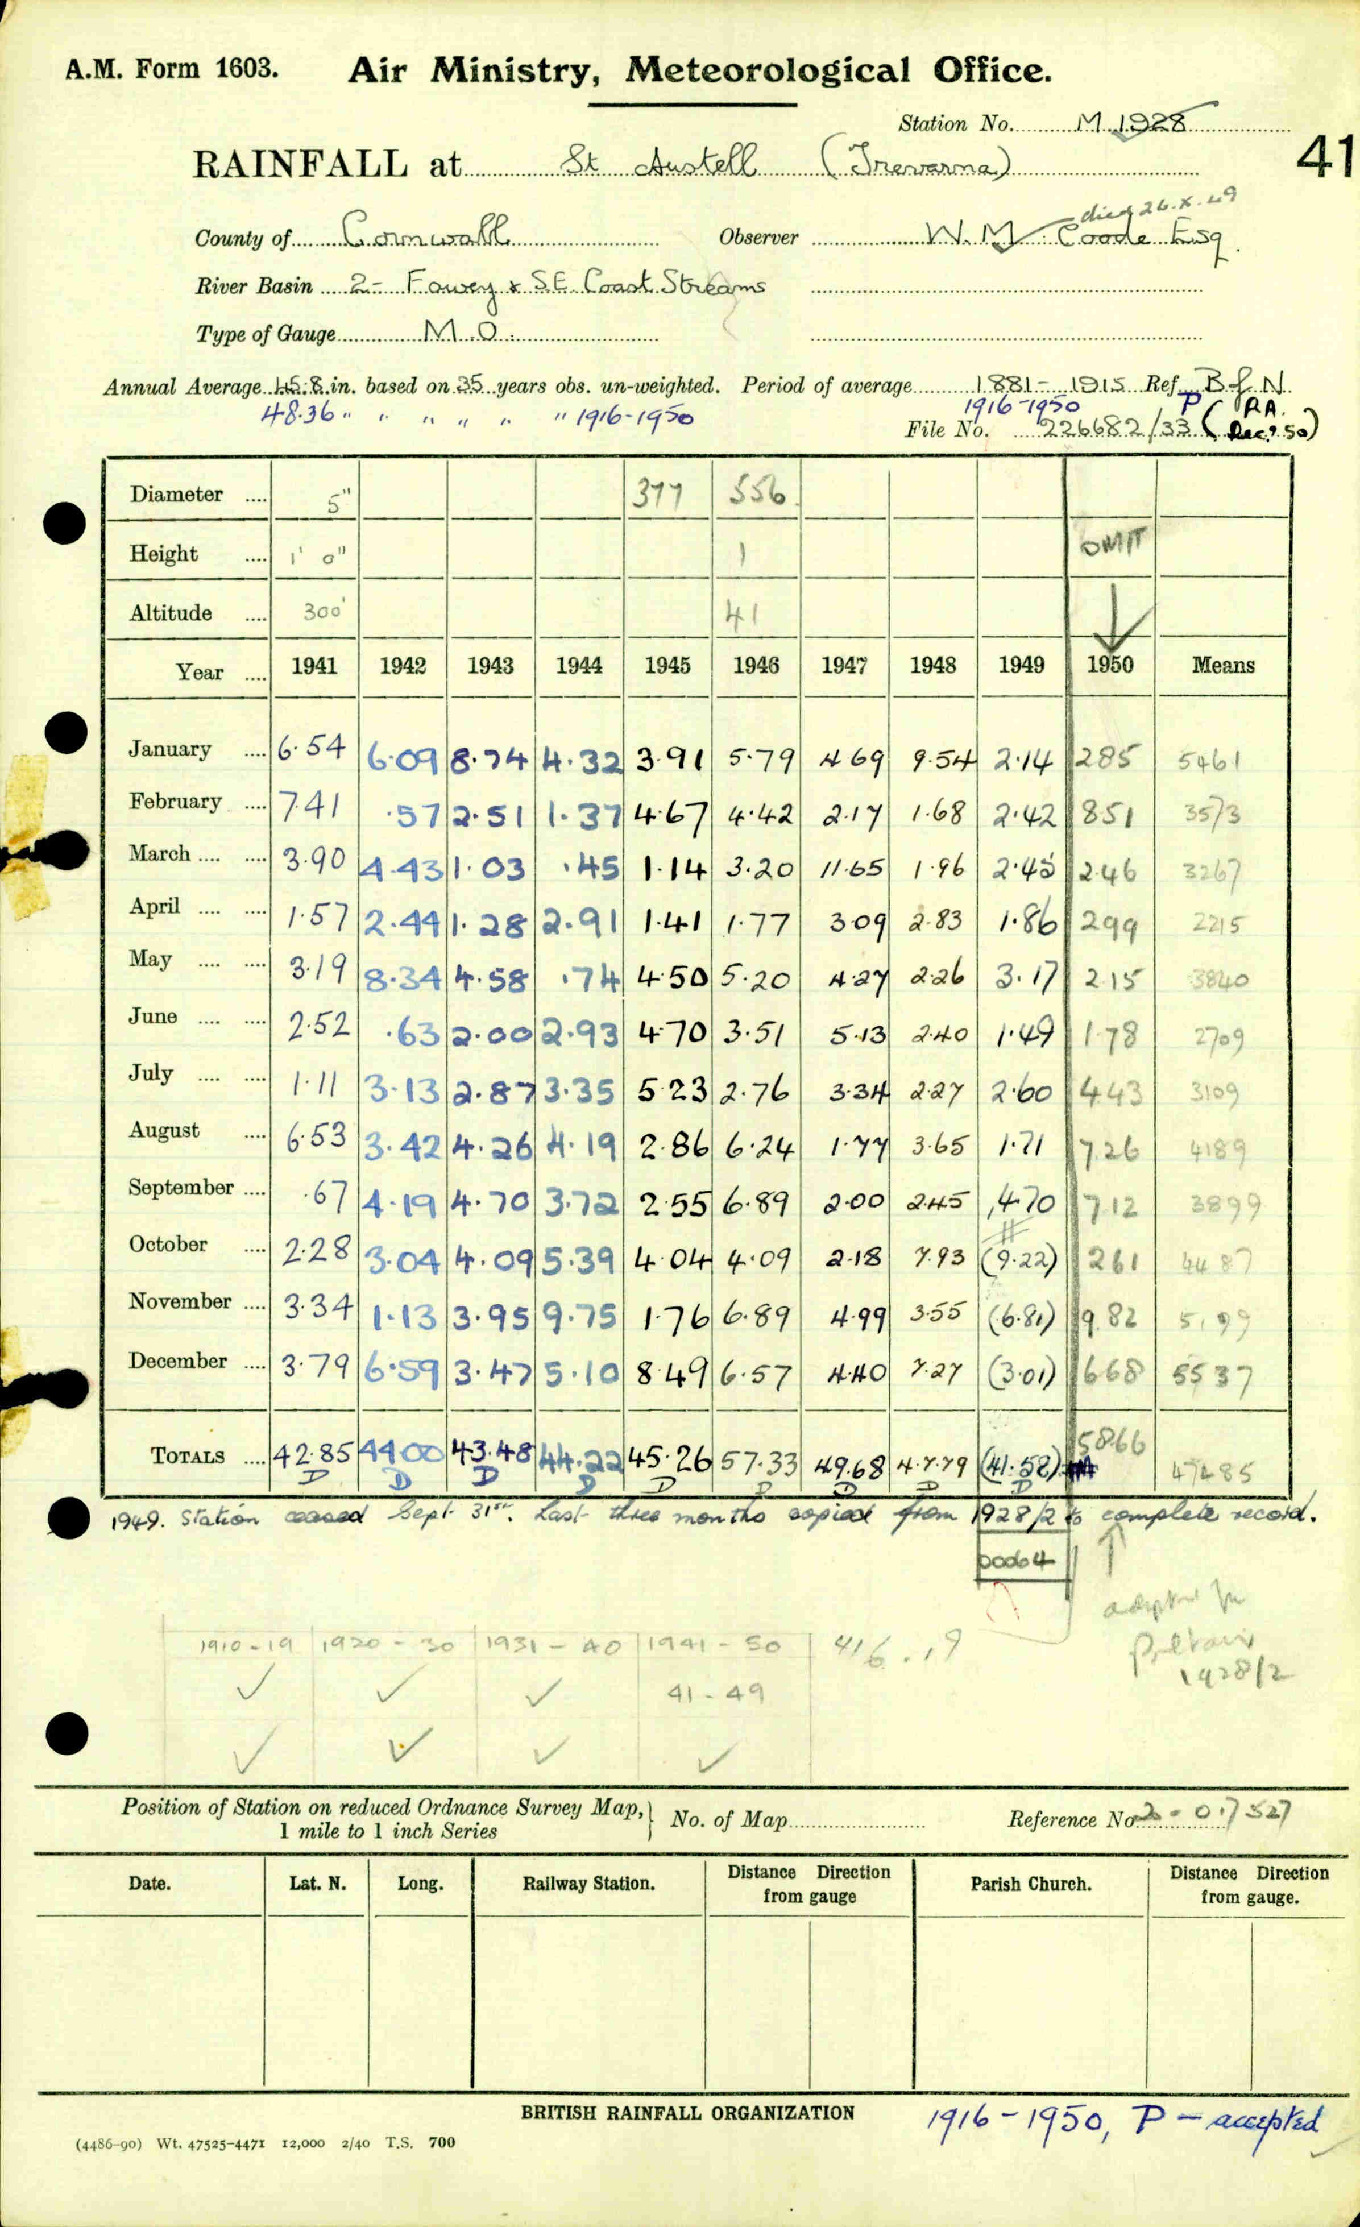 A.M. Form 1603. Air Ministry, Meteorological Office.
Station No. M 1928
41
RAINFALL at St Austell (Trevarna)
died 26.X.49
County of Cornwall Observer W.M. Coode Esq.
River Basin 2- Fowey & S.E. Coast Streams
Type of Gauge M.O.
Annual Average 45.8 in. based on 35 years obs. un-weighted. Period of average 1881-1915 Ref. B of N.
48.36 " " " " " " 1916-1950 1916-1950 P R.A.
File No. 226682/33 (Rec'd. 50)
Diameter .... 5" 377 556
Height .... 1' 0" 1 OMIT
Altitude .... 300' 41
Year .... 1941 1942 1943 1944 1945 1946 1947 1948 1949 1950 Means
January .... 6.54 6.09 8.74 4.32 3.91 5.79 4.69 9.54 2.14 285 5461
February .... 7.41 .57 2.51 1.37 4.67 4.42 2.17 1.68 2.42 851 3573
March .... .... 3.90 4.43 1.03 .45 1.14 3.20 11.65 1.96 2.45 2.46 3267
April .... .... 1.57 2.44 1.28 2.91 1.41 1.77 3.09 2.83 1.86 299 2215
May .... .... 3.19 8.34 4.58 .74 4.50 5.20 4.27 2.26 3.17 2.15 3840
June .... .... 2.52 .63 2.00 2.93 4.70 3.51 5.13 2.40 1.49 1.78 2709
July .... .... 1.11 3.13 2.87 3.35 5.23 2.76 3.34 2.27 2.60 4.43 3109
August .... 6.53 3.42 4.26 4.19 2.86 6.24 1.77 3.65 1.71 7.26 4189
September .... .67 4.19 4.70 3.72 2.55 6.89 2.00 2.45 4.70 7.12 3899
October .... 2.28 3.04 4.09 5.39 4.04 4.09 2.18 7.93 (9.22) 261 4487
November .... 3.34 1.13 3.95 9.75 1.76 6.89 4.99 3.55 (6.81) 9.82
December .... 3.79 6.59 3.47 5.10 8.49 6.57 4.40 7.27 (3.01) 668 5537
TOTALS .... 42.85 44.00 43.48 44.22 45.26 57.33 49.68 47.79 (41.58) 58.66 47485
D D D D D D D D D
1949. Station ceased Sept. 31st. Last three months copied from 1928/2 to complete record.
00064
1928/2
1910-19 1920-30 1931-40 1941-50 416.19
41-49
Position of Station on reduced Ordnance Survey Map,
1 mile to 1 inch Series
No. of Map Reference No 20-017527
Date. Lat. N. Long. Railway Station. Distance Direction from gauge Parish Church. Distance Direction from gauge.
BRITISH RAINFALL ORGANIZATION 1916-1950, P - accepted
(4486-90) Wt. 47525-4471 12,000 2/40 T.S. 700